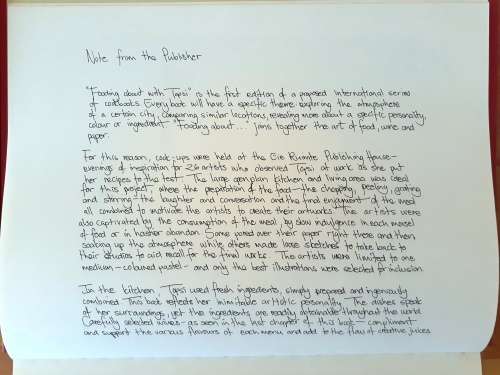 Note from the Publisher
"Fooding about with Tapsi" is the first edition of a proposed international series
of cookbooks. Every book will have a specific theme exploring the atmosphere
of a certain city, comparing similar locations, revealing more about a specific personality,
colour or ingredient. "Fooding about..." joins together the art of food, wine and
paper.
For this reason, cook-ups were held at the Cie Publishing House -
evenings of inspiration for 26 artists who observed Tapsi at work as she put
her recipes to the test. The large open plan kitchen and living area was ideal
for this project, where the preparation of the food - the chopping, peeling, grating
and stirring - the laughter and conversation and the final enjoyment of the meal
all combined to motivate the artists to create their artworks. The artists were
also captivated by the consumption of the meal, by slow indulgence in each morsel
of food or in hastier abandon. Some pored over their paper right there and then,
soaking up the atmosphere while others made loose sketches to take back to
their studios to aid recall for the final works. The artists were limited to one
medium - coloured pastel - and only the best illustrations were selected for inclusion.
In the kitchen, Tapsi used fresh ingredients, simply prepared and ingeniously
combined. This book reflects her inimitable artistic personality. The dishes speak
of her surroundings, yet the ingredients are readily obtainable throughout the world.
Carefully selected wines - as seen in the last chapter of this book - compliment
and support the various flavours of each menu and add to the flow of creative juices.